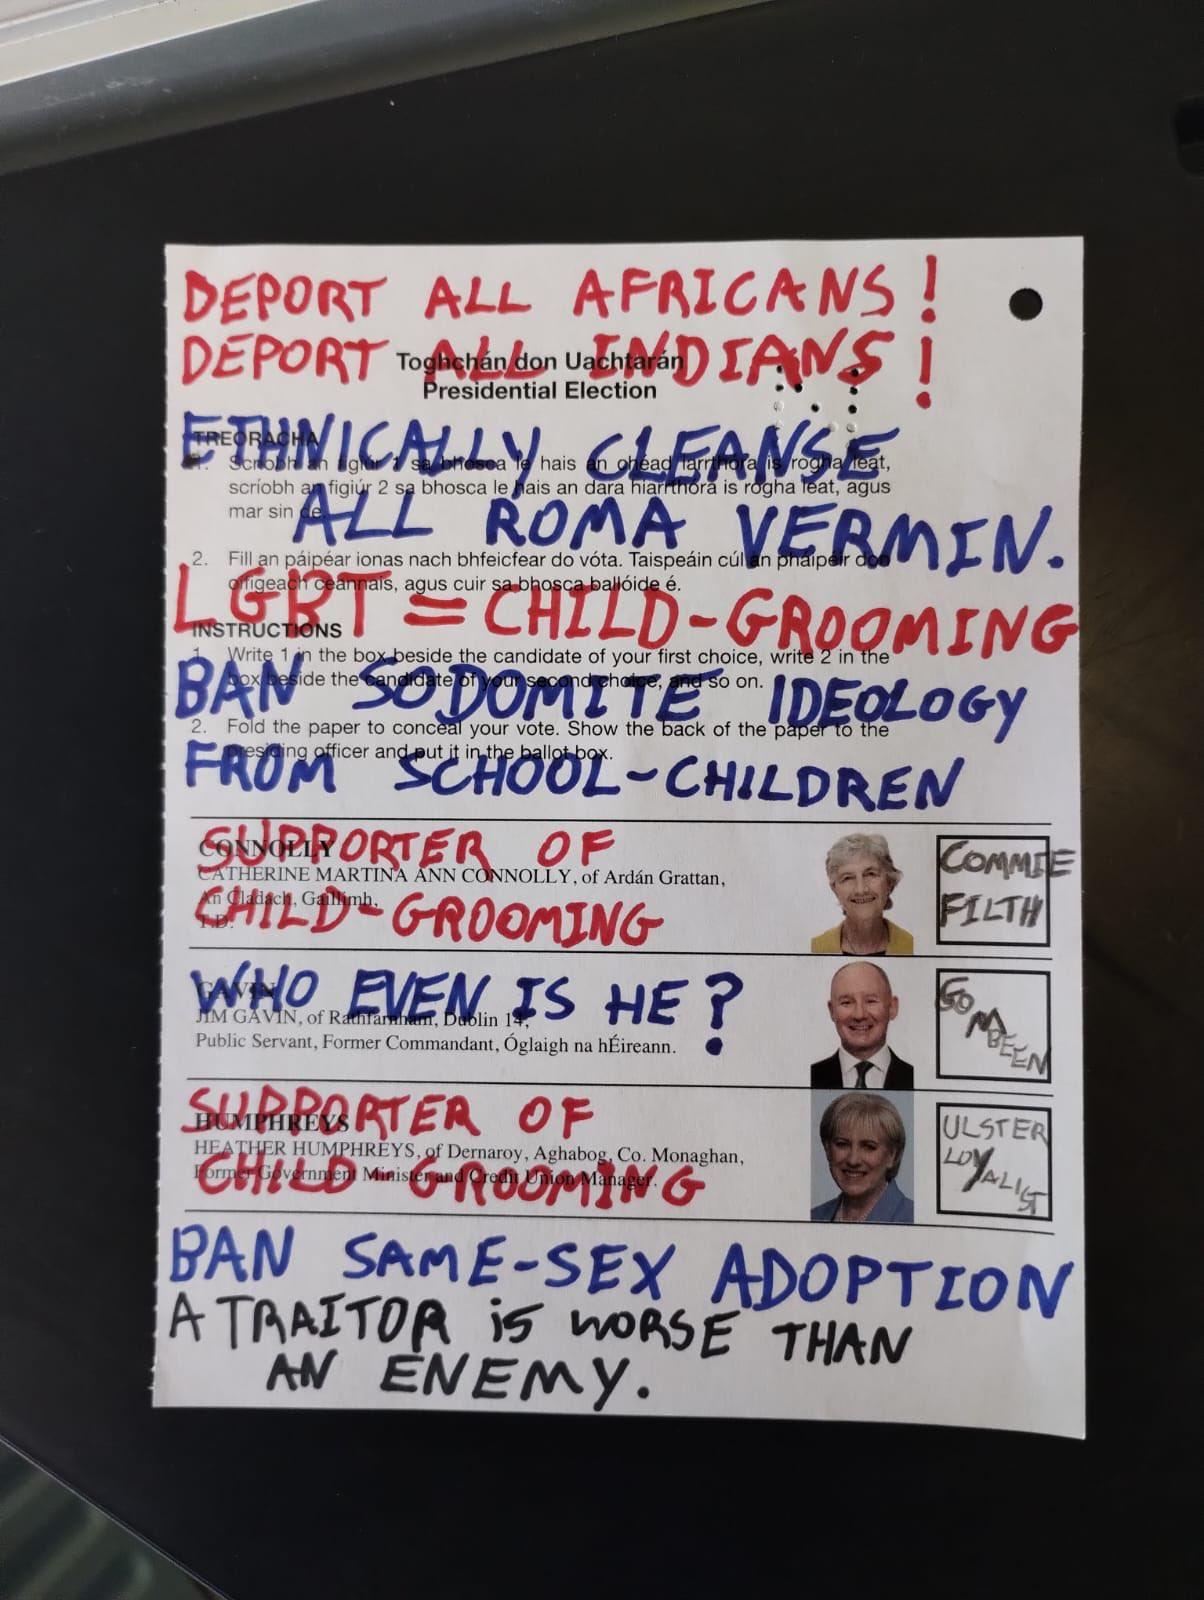 DEPORT ALL AFRICANS!
DEPORT ALL INDIANS!
Toghchán don Uachtarán
Presidential Election
ETHNICALLY CLEANSE
TREORACHA
1. Scríobh an figiúr 1 sa bhosca le hais an chéad iarrthóra is rogha leat,
scríobh an figiúr 2 sa bhosca le hais an dara hiarrthóra is rogha leat, agus
mar sin de.
ALL ROMA VERMIN.
2. Fill an páipéar ionas nach bhfeicfear do vóta. Taispeáin cúl an pháipéir don
oifigeach ceannais, agus cuir sa bhosca ballóide é.
LGBT = CHILD-GROOMING
INSTRUCTIONS
1. Write 1 in the box beside the candidate of your first choice, write 2 in the
box beside the candidate of your second choice, and so on.
BAN SODOMITE IDEOLOGY
2. Fold the paper to conceal your vote. Show the back of the paper to the
presiding officer and put it in the ballot box.
FROM SCHOOL-CHILDREN
SUPPORTER OF
CONNOLLY
CATHERINE MARTINA ANN CONNOLLY, of Ardán Grattan,
An Cladach, Gaillimh,
T.D.
CHILD-GROOMING
COMMIE
FILTH
WHO EVEN IS HE?
GAVIN
JIM GAVIN, of Rathfarnham, Dublin 14,
Public Servant, Former Commandant, Óglaigh na hÉireann.
GOMBEEN
SUPPORTER OF
HUMPHREYS
HEATHER HUMPHREYS, of Dernaroy, Aghabog, Co. Monaghan,
Former Government Minister and Credit Union Manager.
CHILD GROOMING
ULSTER
LOYALIST
BAN SAME-SEX ADOPTION
A TRAITOR iS WORSE THAN
AN ENEMY.